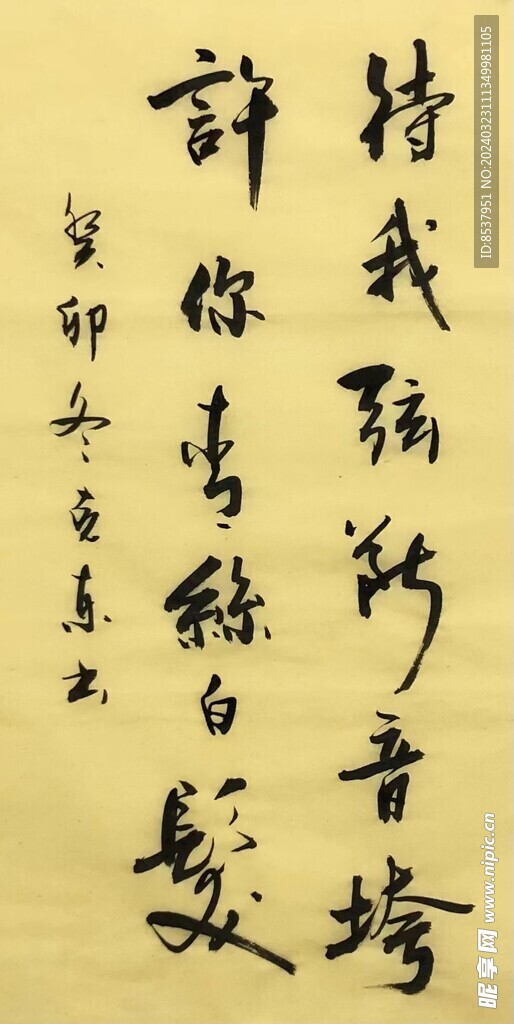 待我弦断音垮
許你青絲白髮
癸卯冬克東书
ID:8537951 NO:20240323111349981105
昵享网 www.nipic.cn